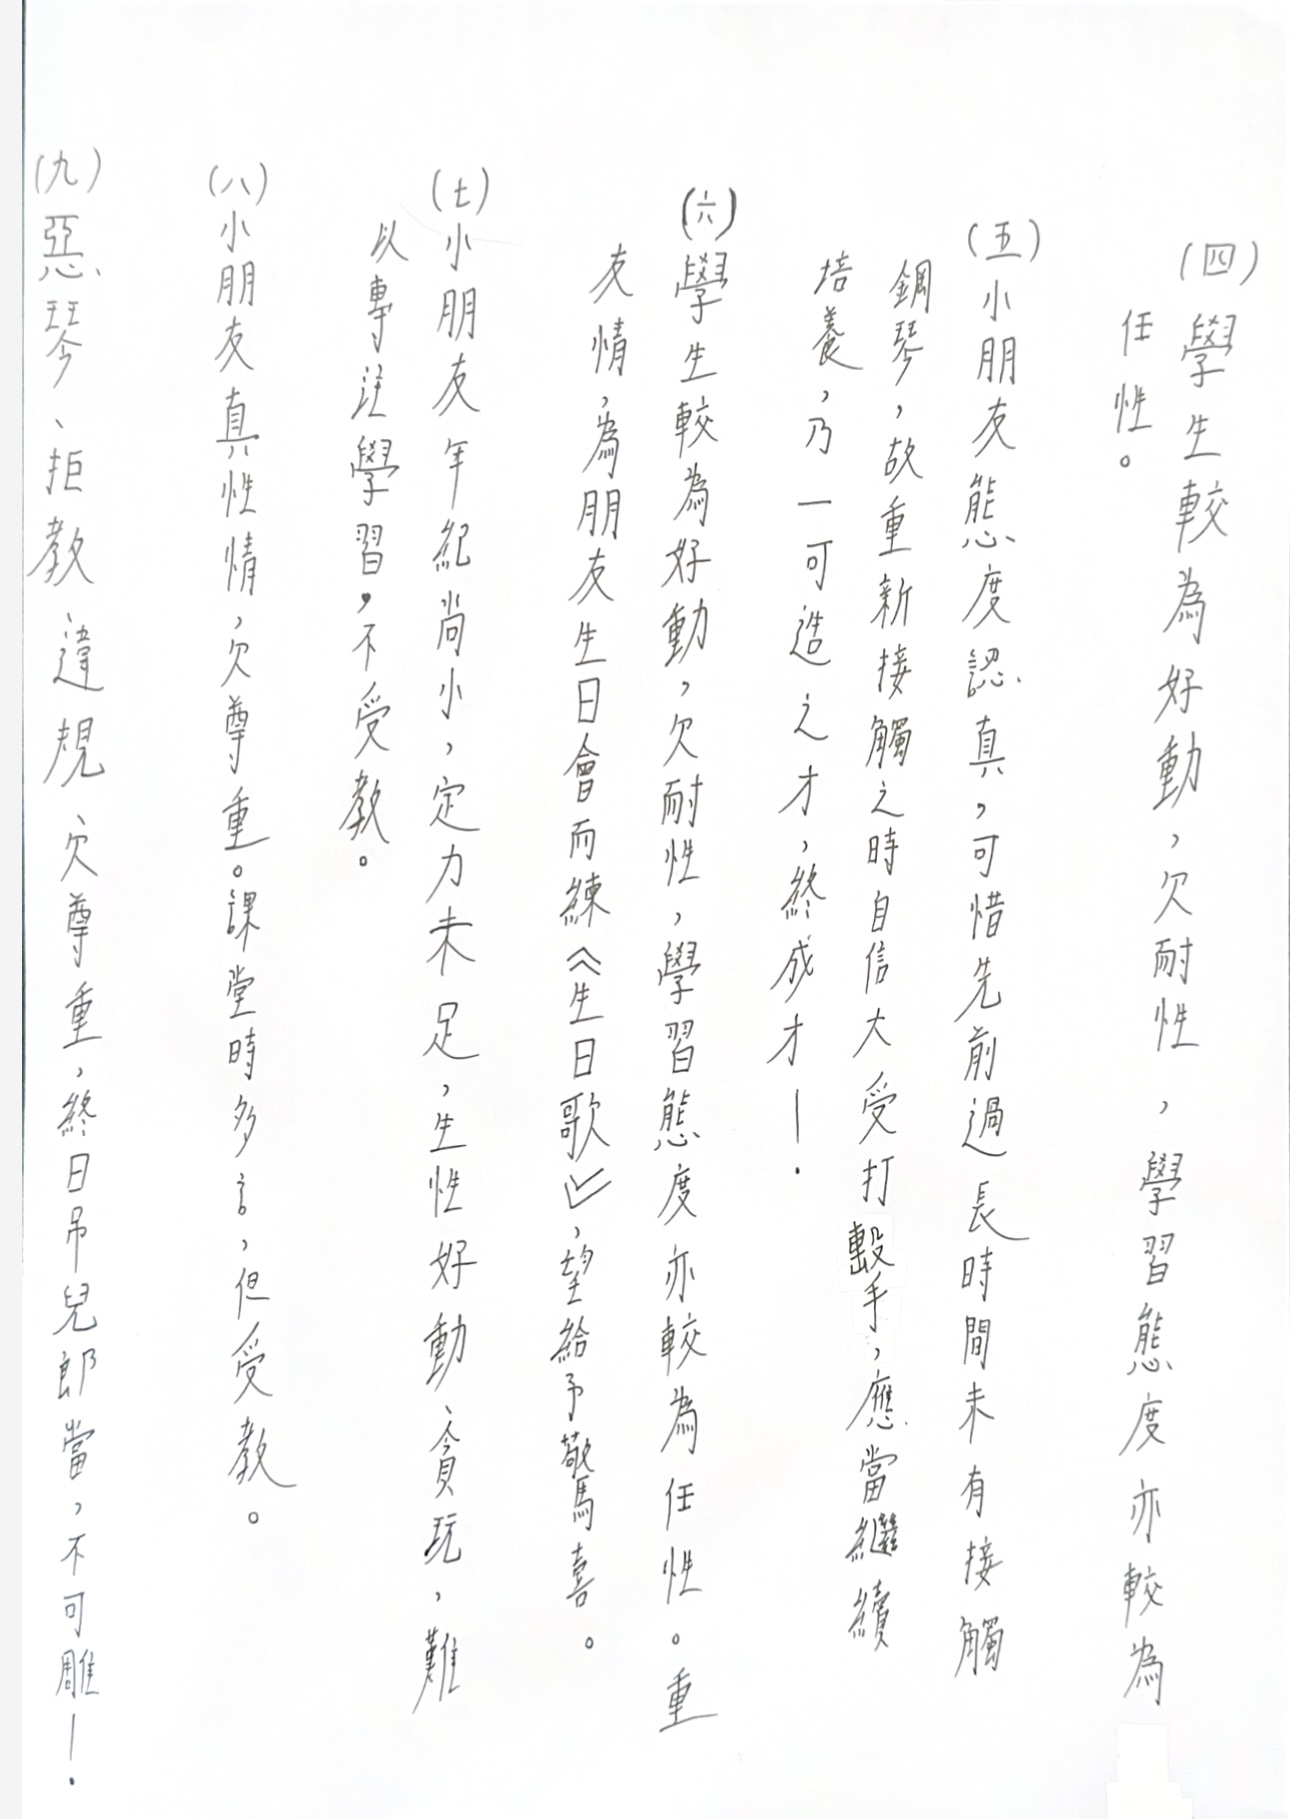 (四)學生較為好動，欠耐性，學習態度亦較為
任性。
(五)小朋友態度認真，可惜先前過長時間未有接觸
鋼琴，故重新接觸之時自信大受打擊手，應當繼續
培養，乃一可造之才，終成才！
(六)學生較為好動，欠耐性，學習態度亦較為任性。重
友情，為朋友生日會而練《生日歌》，望給予驚喜。
(七)小朋友年紀尚小，定力未足，生性好動、貪玩，難
以專注學習，不受教。
(八)小朋友真性情，欠尊重。課堂時多言，但受教。
(九)惡琴、拒教、違規、欠尊重，終日吊兒郎當，不可雕！